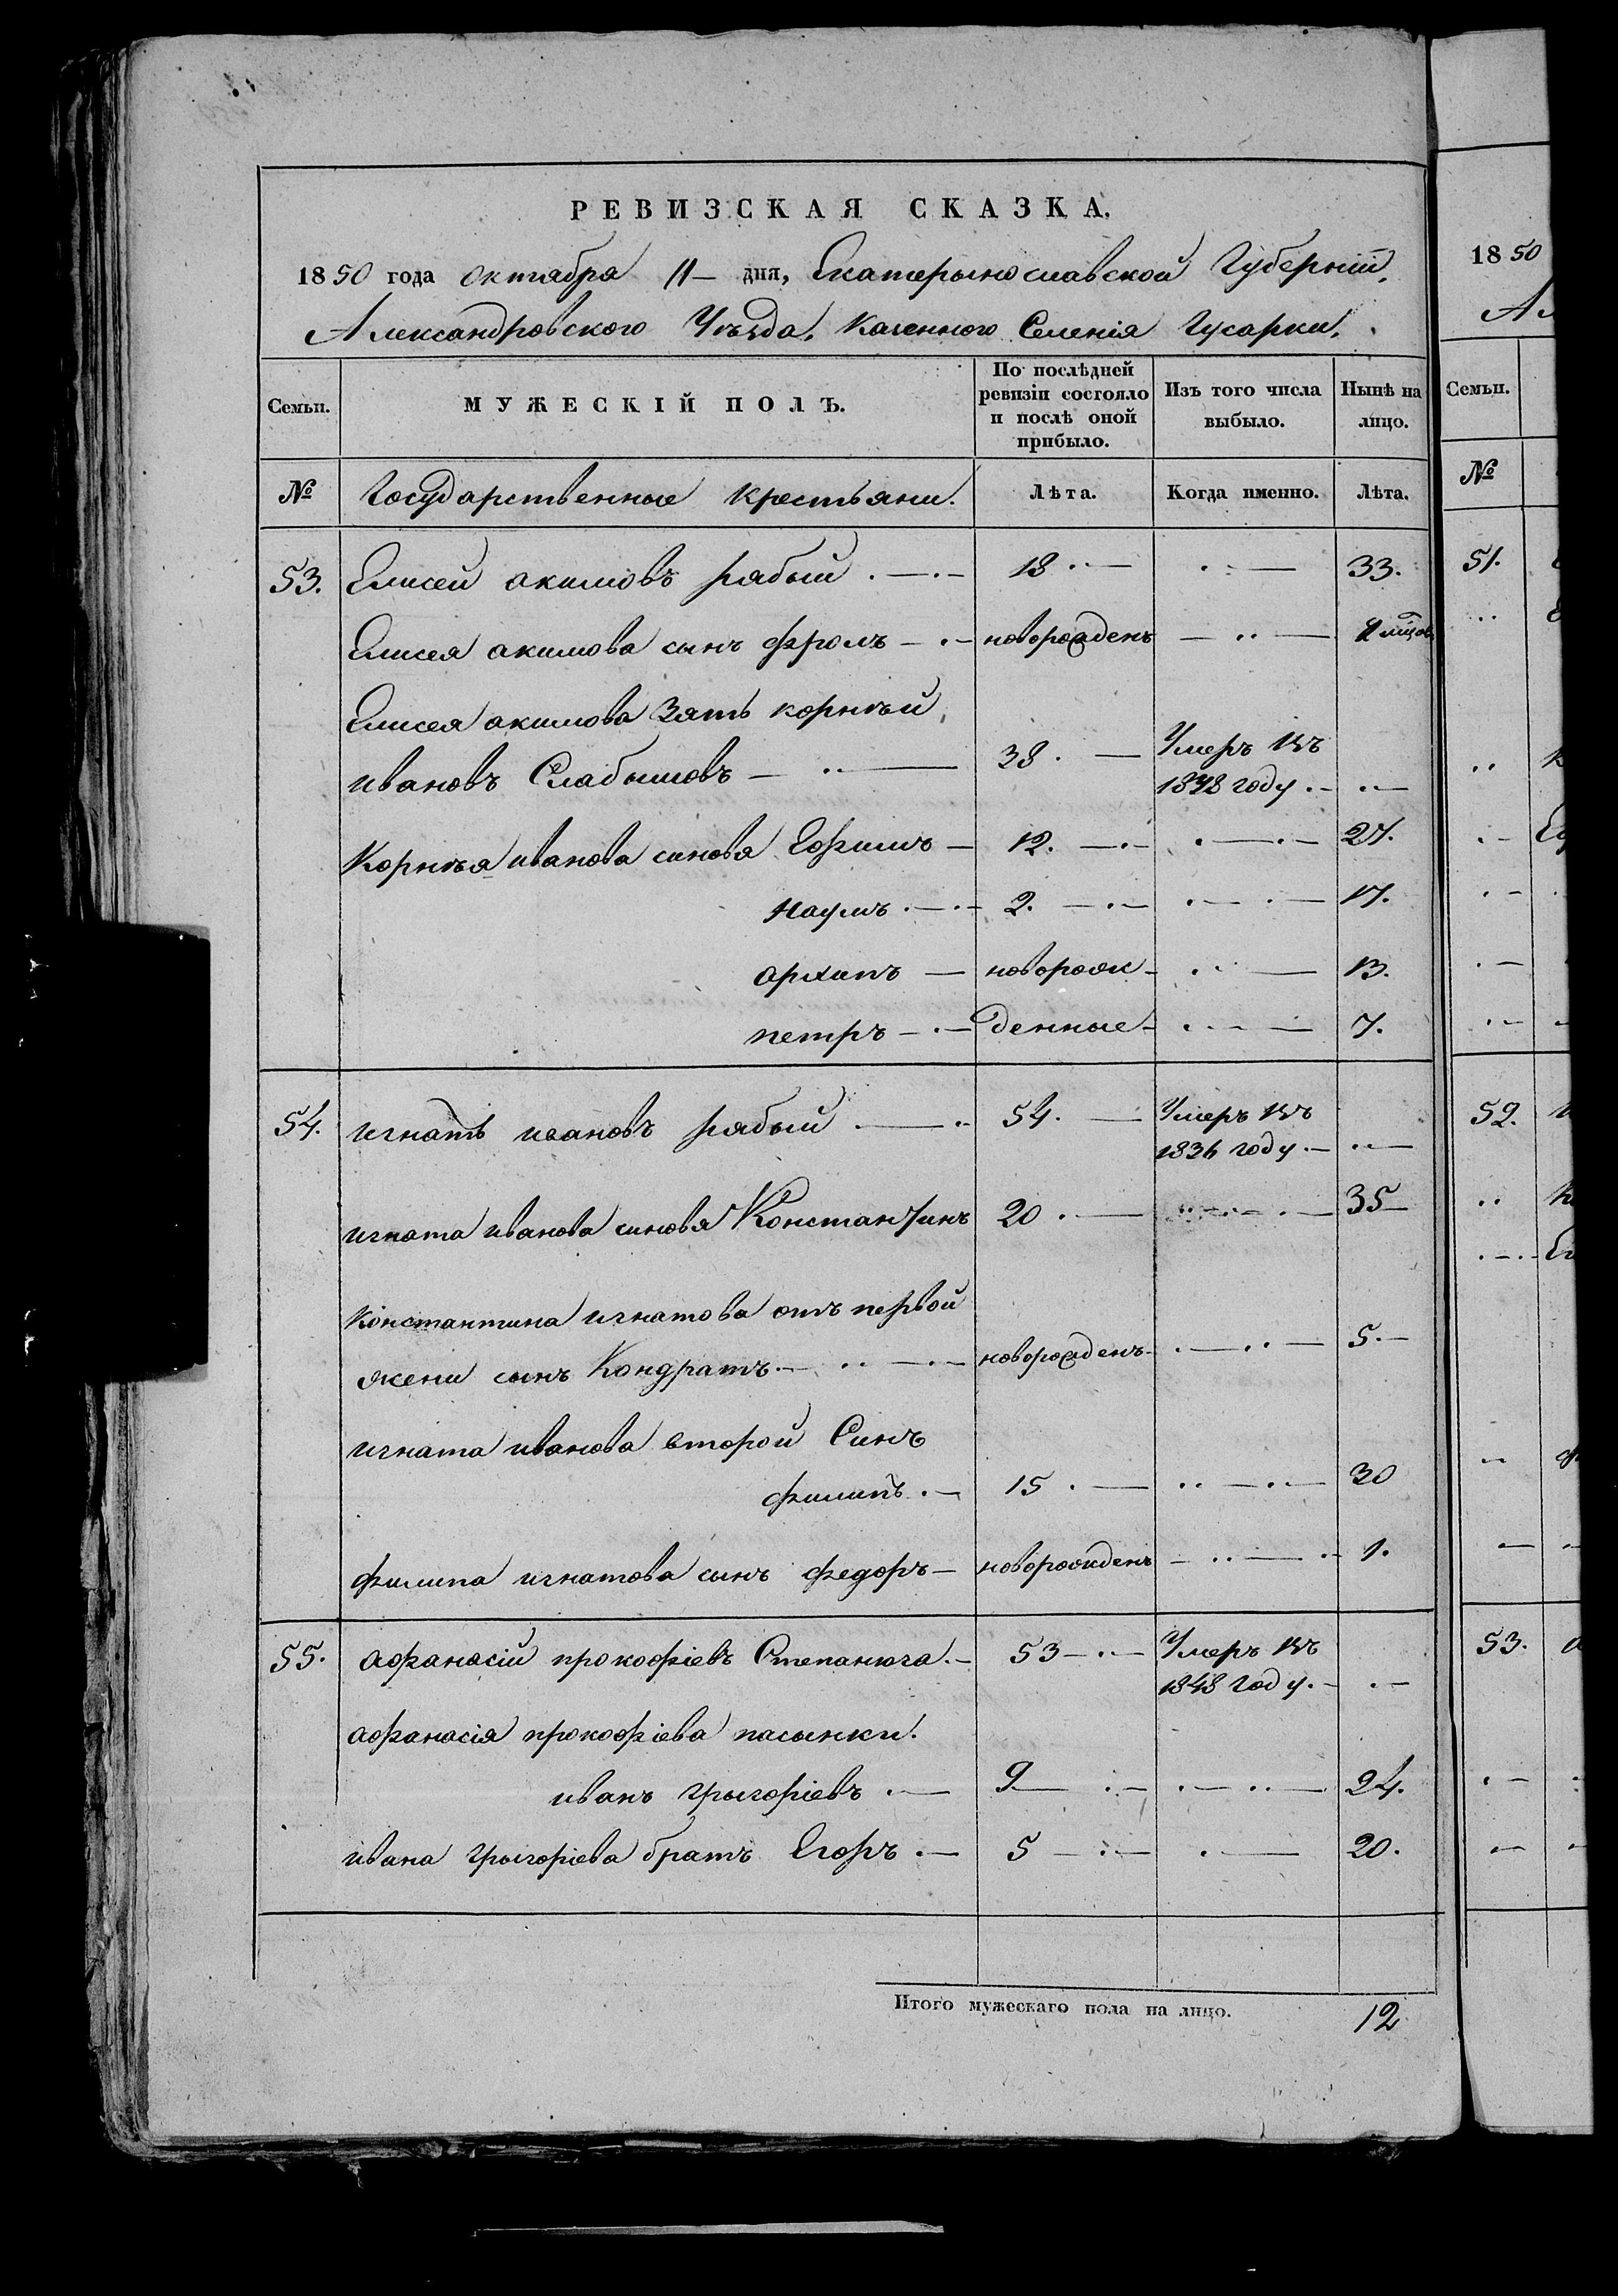 РЕВИЗСКАЯ СКАЗКА.
1850 года октября 11 — дня, Екатерынославской Губерніи,
Александровского Уѣзда, Казенного Селенія Гусарки.
Семьи. МУЖЕСКІЙ ПОЛЪ. По послѣдней ревизіи состояло и послѣ оной прибыло. Изъ того числа выбыло. Нынѣ на лицо.
№ Государственные крестьяни. Лѣта. Когда именно. Лѣта.
53. Елисей акимовъ рябый 18 33.
Елисея акимова сынъ фролъ новорожденъ
Елисея акимова Зять корнѣй
ивановъ Слабышовъ 38. Умеръ въ
году
Корнѣя иванова синовя Ефимъ 12. 27.
наумъ 2. 17.
архипъ новорож- 13.
петръ денные 7.
54. игнатъ ивановъ рябый 54. Умеръ въ
1836 году
игната иванова синовя Константинъ 20 35
константина игнатова отъ первой
жени сынъ Кондратъ новорожденъ 5
игната иванова второй Синъ
филипъ 15 30
филипа игнатова сынъ федоръ новорожденъ 1.
55. афанасій прокофіевъ Степанюга 53 Умеръ въ
1848 году
афанасія прокофіева пасынки.
иванъ грыгоріевъ 9 24.
ивана грыгоріева братъ Егоръ 5 20.
Итого мужескаго пола на лицо. 12
1850
Семьи.
№
51.
52.
53.